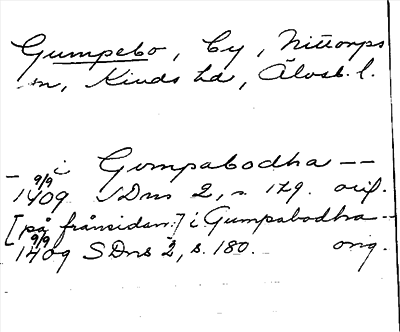 Gumpebo, by, Nittorps
sn, Kinds hd, Älvsb. l.
— i Gompabodha — —
9/9 1409 SDns 2, s. 179. orig.
[på frånsidan:] i Gumpabodha —
9/9 1409 SDns 2, s. 180. orig.